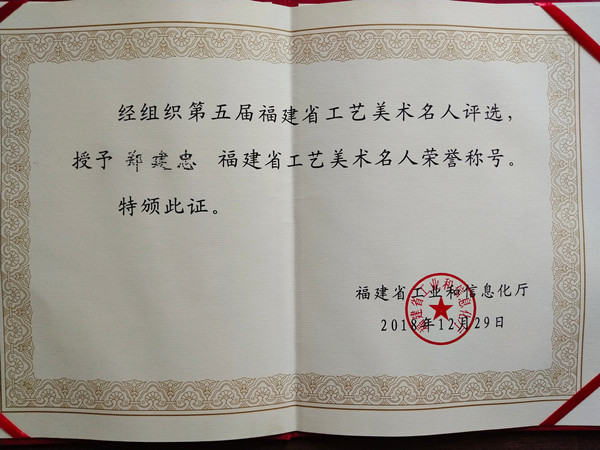 经组织第五届福建省工艺美术名人评选，
授予 郑建忠 福建省工艺美术名人荣誉称号。
特颁此证。
福建省工业和信息化厅
2018年12月29日
福建省工业和信息化厅